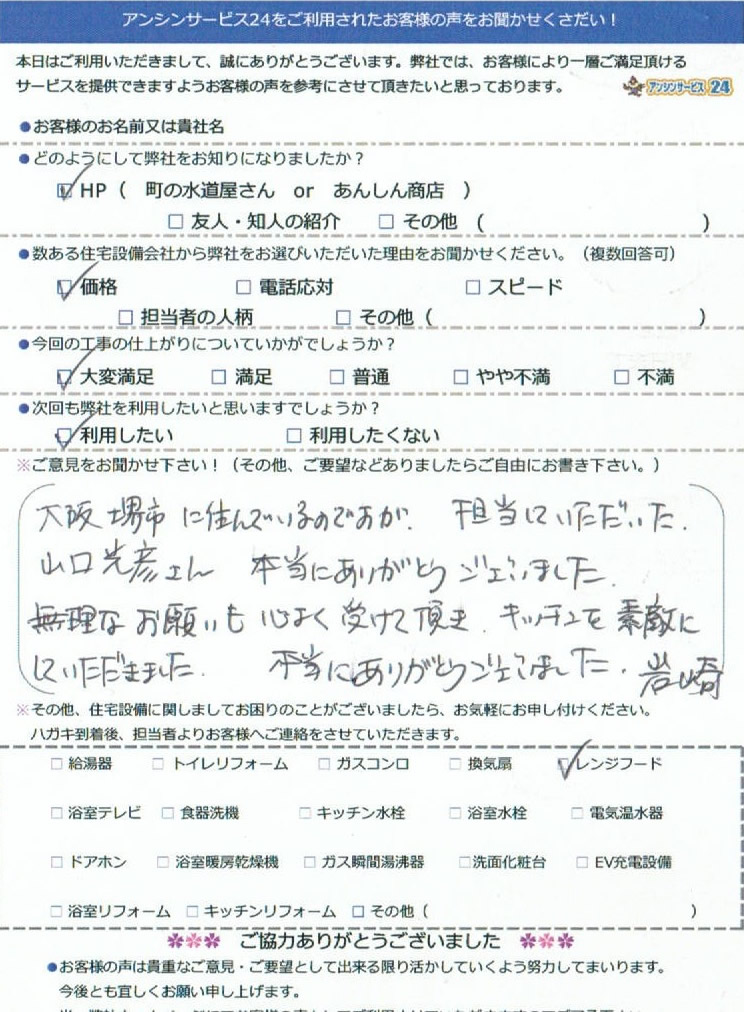 アンシンサービス24をご利用されたお客様の声をお聞かせくさだい！
本日はご利用いただきまして、誠にありがとうございます。弊社では、お客様により一層ご満足頂ける
サービスを提供できますようお客様の声を参考にさせて頂きたいと思っております。
アンシンサービス 24
●お客様のお名前又は貴社名
●どのようにして弊社をお知りになりましたか？
☑HP（　町の水道屋さん　or　あんしん商店　）
□友人・知人の紹介　□その他　（　）
●数ある住宅設備会社から弊社をお選びいただいた理由をお聞かせください。（複数回答可）
☑価格　□電話応対　□スピード
□担当者の人柄　□その他（　）
●今回の工事の仕上がりについていかがでしょうか？
☑大変満足　□満足　□普通　□やや不満　□不満
●次回も弊社を利用したいと思いますでしょうか？
☑利用したい　□利用したくない
※ご意見をお聞かせ下さい！（その他、ご要望などありましたらご自由にお書き下さい。）
大阪堺市に住んでいるのですが、担当していただいた、
山口光彦さん　本当にありがとうございました。
無理なお願いも心よく受けて頂き、キッチンを素敵に
していただきました。　本当にありがとうございました。岩崎
※その他、住宅設備に関しましてお困りのことがございましたら、お気軽にお申し付けください。
ハガキ到着後、担当者よりお客様へご連絡をさせていただきます。
□給湯器　□トイレリフォーム　□ガスコンロ　□換気扇　☑レンジフード
□浴室テレビ　□食器洗機　□キッチン水栓　□浴室水栓　□電気温水器
□ドアホン　□浴室暖房乾燥機　□ガス瞬間湯沸器　□洗面化粧台　□EV充電設備
□浴室リフォーム　□キッチンリフォーム　□その他（　）
ご協力ありがとうございました
●お客様の声は貴重なご意見・ご要望として出来る限り活かしていくよう努力してまいります。
今後とも宜しくお願い申し上げます。